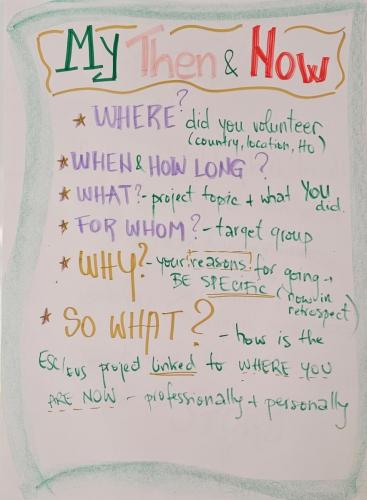 My Then & Now
* WHERE? did you volunteer
(country, location, HO)
* WHEN & HOW LONG?
* WHAT? - project topic + what YOU
did.
* FOR WHOM? - target group
* WHY? - your reasons for going →
BE SPECIFIC (now in
retrospect)
* SO WHAT? - how is the
ESC/EVS project linked to WHERE YOU
ARE NOW - professionally + personally